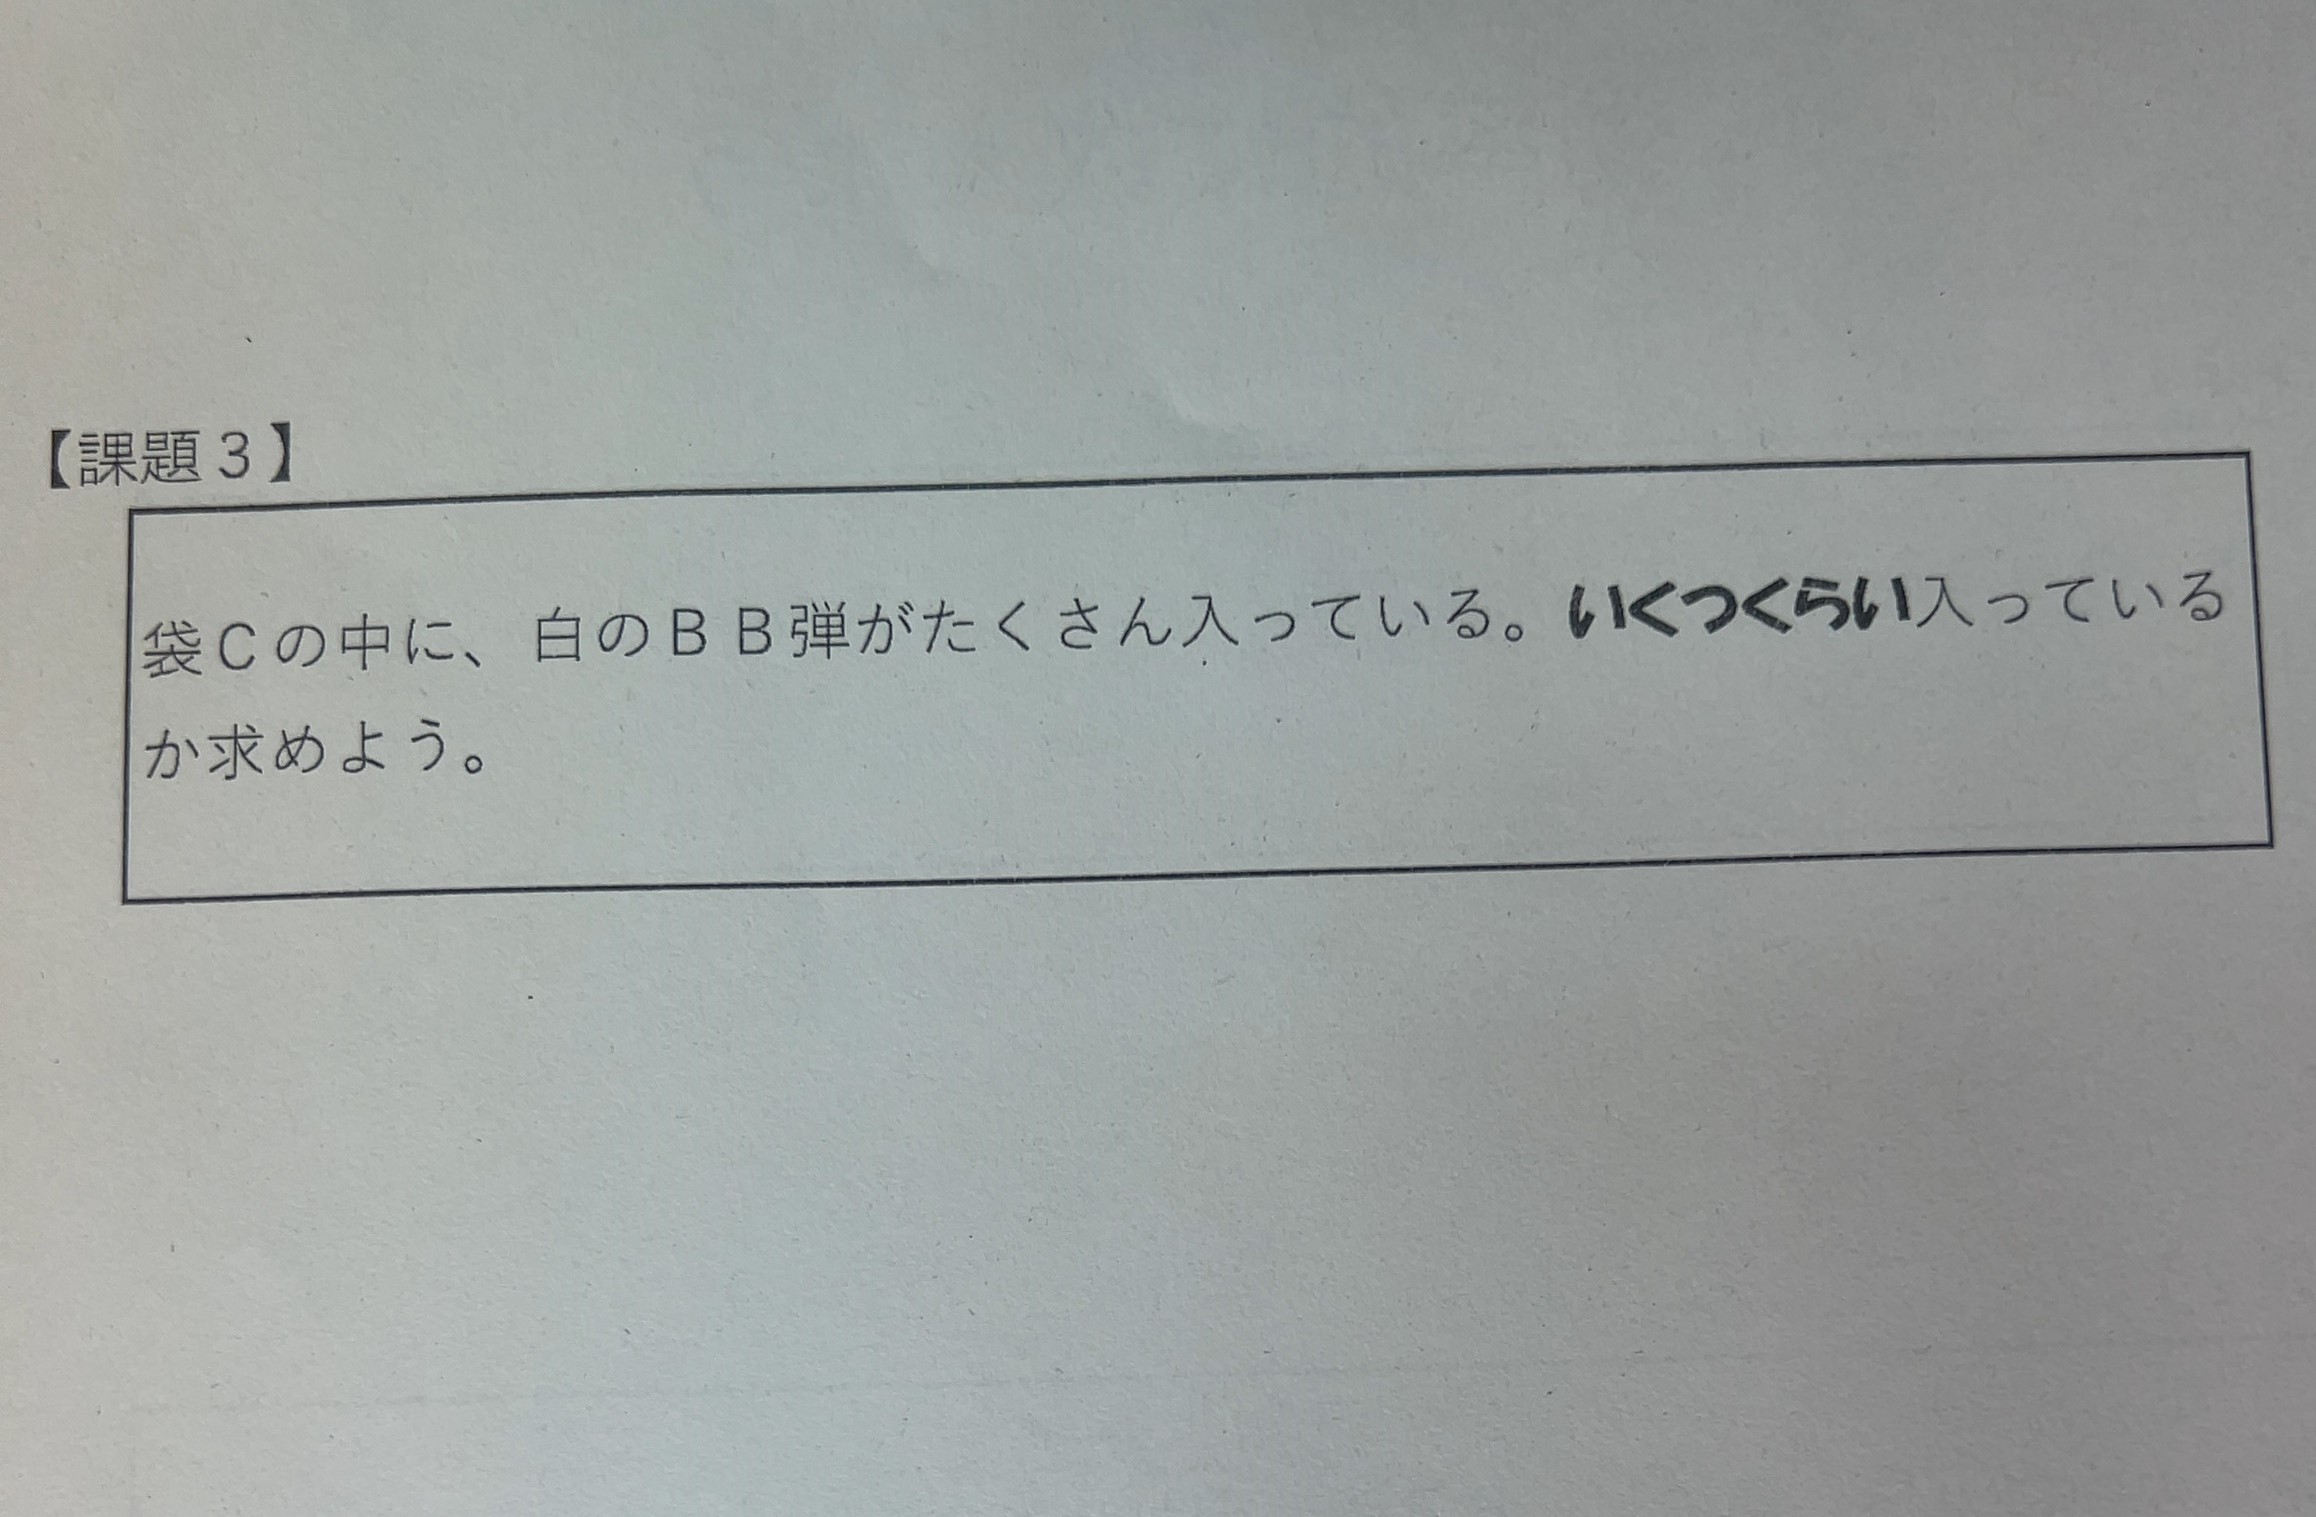 【課題３】
袋Ｃの中に、白のＢＢ弾がたくさん入っている。いくつくらい入っている
か求めよう。